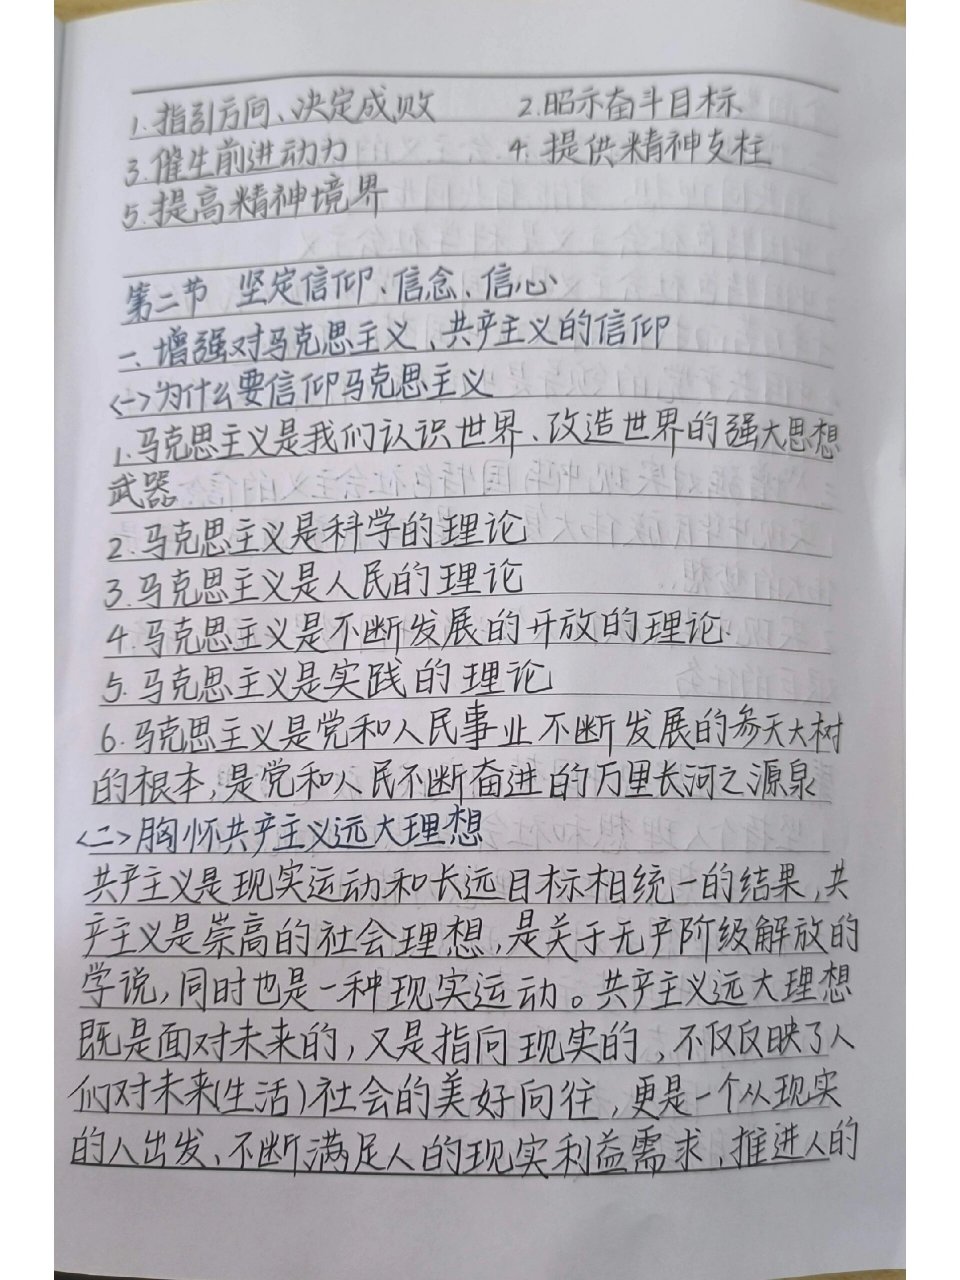 1.指引方向、决定成败 2.昭示奋斗目标
3.催生前进动力 4.提供精神支柱
5.提高精神境界
第二节 坚定信仰、信念、信心
一、增强对马克思主义、共产主义的信仰
<一>为什么要信仰马克思主义
1.马克思主义是我们认识世界、改造世界的强大思想
武器
2.马克思主义是科学的理论
3.马克思主义是人民的理论
4.马克思主义是不断发展的开放的理论.
5.马克思主义是实践的理论
6.马克思主义是党和人民事业不断发展的参天大树
的根本,是党和人民不断奋进的万里长河之源泉
<二>胸怀共产主义远大理想
共产主义是现实运动和长远目标相统一的结果,共
产主义是崇高的社会理想,是关于无产阶级解放的
学说,同时也是一种现实运动。共产主义远大理想
既是面对未来的,又是指向现实的,不仅反映了人
们对未来(生活)社会的美好向往,更是一个从现实
的人出发、不断满足人的现实利益需求、推进人的